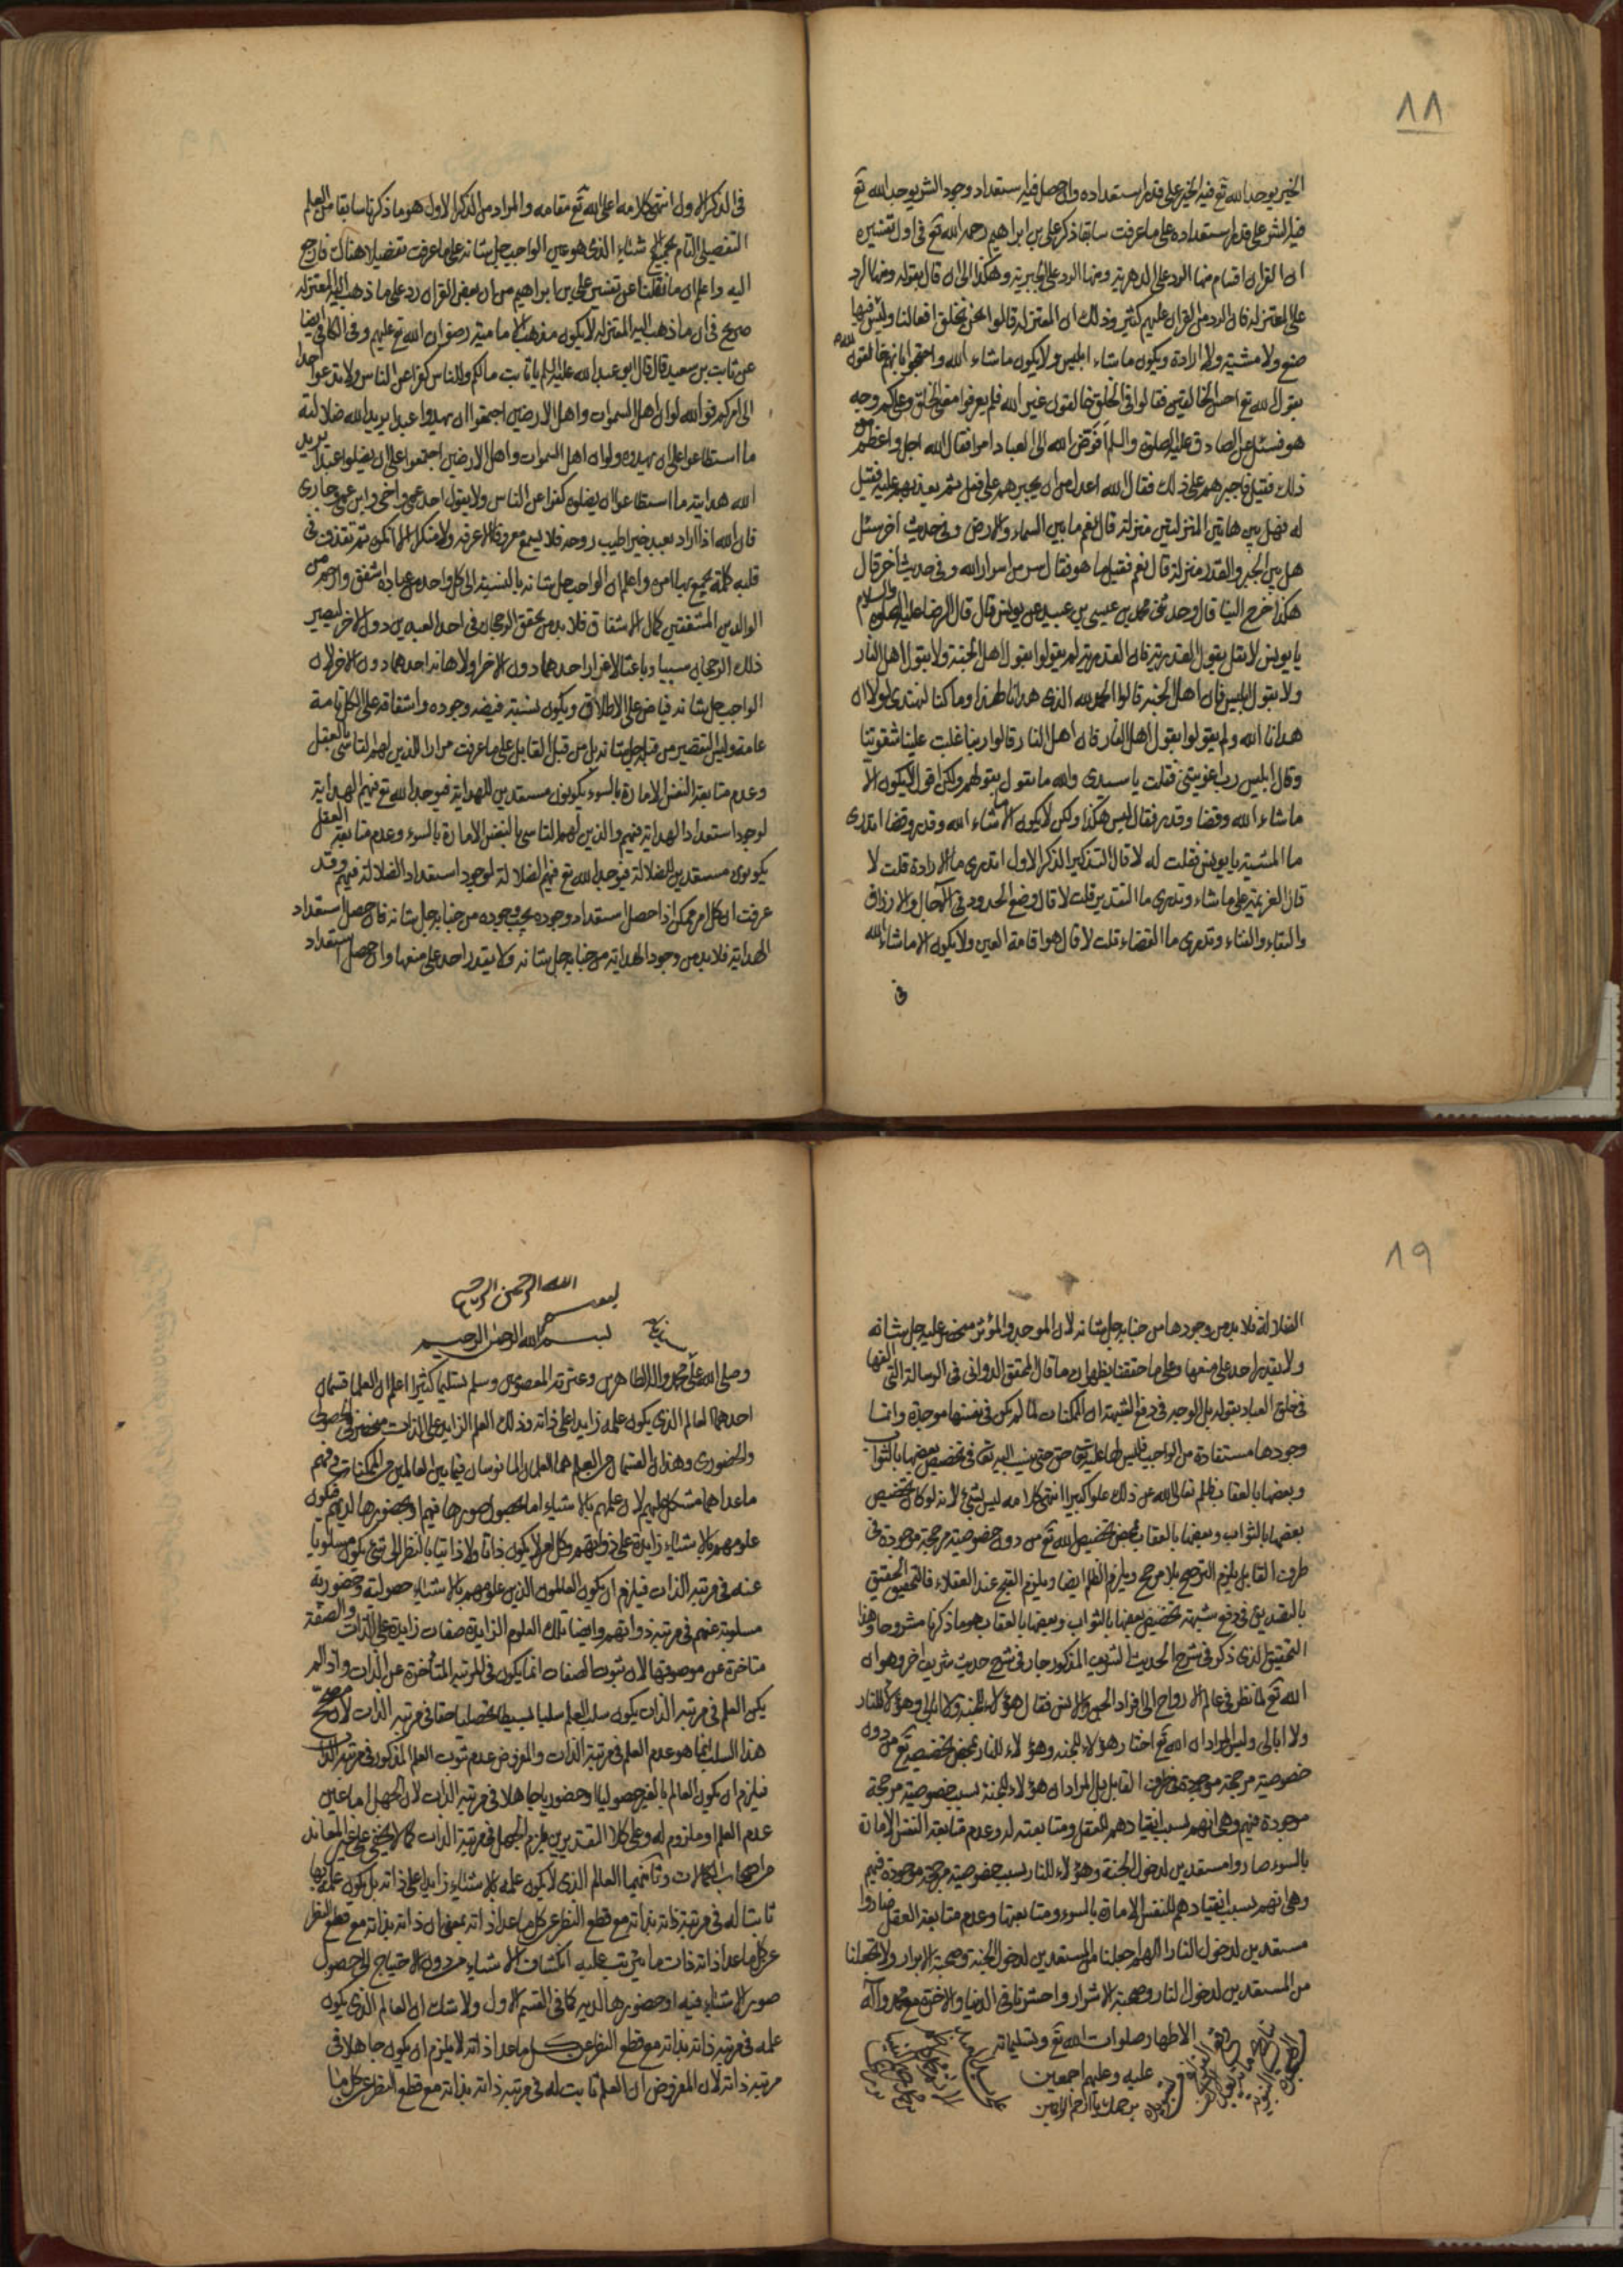 ٨٨
الخير يوجد الله تع فيه الخير على قدر استعداده وان حصل فيه استعداد وجود الشر يوجد الله تع
فيه الشر على قدر استعداده على ما عرفت سابقا ذكر علي بن ابراهيم رحمه الله تع في اول تفسيره
ان القران اقسام منها الرد على الدهرية ومنها الرد على الجبرية وهكذا الى ان قال بقوله ومنها الرد
على المعتزلة فان الرد من القران عليهم كثير وذلك ان المعتزلة قالوا نحن نخلق افعالنا وليس فيها
صنع ولا مشية ولا ارادة ويكون ما شاء ابليس ولا يكون ما شاء الله واحتجوا بانهم خالقون
بقول الله تع احسن الخالقين فقالوا في الخلق خالقون غير الله فلم يعرفوا معنى الخلق وعلى كم وجه
هو فسئل عن الصادق عليه الصلوة والسلم افوض الله الى العباد امرا فقال الله اجل واعظم من
ذلك فقيل فاجبرهم على ذلك فقال الله اعدل من ان يجبرهم على فعل ثم يعذبهم عليه فقيل
له فهل بين هاتين المنزلتين منزلة قال نعم ما بين السماء والارض وفي حديث اخر سئل
هل بين الجبر والقدر منزلة قال نعم فقيل ما هو فقال سر من اسرار الله وفي حديث اخر قال
هكذا خرج الينا قال وحدثني محمد بن عيسى بن عبيد عن يونس قال قال الرضا عليه الصلوة والسلام
يا يونس لا تقل بقول القدرية فان القدرية لم يقولوا بقول اهل الجنة ولا بقول اهل النار
ولا بقول ابليس فان اهل الجنة قالوا الحمد لله الذي هدانا لهذا وما كنا لنهتدي لولا ان
هدانا الله ولم يقولوا بقول اهل النار فان اهل النار قالوا ربنا غلبت علينا شقوتنا
وقال ابليس رب اغويتني فقلت يا سيدي والله ما نقول بقولهم ولكن اقول لا يكون الا
ما شاء الله وقضا وقدر فقال ليس هكذا ولكن لا يكون الا ما شاء الله وقدر وقضا اتدري
ما المشية يا يونس فقلت له لا قال التذكير الذكر الاول اتدري ما الارادة قلت لا
قال العزيمة على ما شاء وتدري ما التقدير قلت لا قال وضع الحدود في الآجال والارزاق
والبقاء والفناء وتدري ما القضاء قلت لا قال هو اقامة العين ولا يكون الا ما شاء الله
في
في الذكر الاول انتهى كلامه اعلى الله تع مقامه والمراد من الذكر الاول هو ما ذكرنا سابقا من العلم
التفصيلي التام بجميع الاشياء الذي هو عين الواجب جل شانه على ما عرفت تفصيلا هناك فارجع
اليه واعلم ان ما نقلنا عن تفسير علي بن ابراهيم من ان بعض القران رد على ما ذهب اليه المعتزلة
صريح في ان ما ذهب اليه المعتزلة لا يكون مذهب الامامية رضوان الله تع عليهم وفي الكافي ايضا
عن ثابت بن سعيد قال قال ابو عبد الله عليه السلم يا ثابت ما لكم وللناس كفوا عن الناس ولا تدعوا احدا
الى امركم فوالله لو ان اهل السموات واهل الارضين اجتمعوا ان يهدوا عبدا يريد الله ضلالته
ما استطاعوا على ان يهدوه ولو ان اهل السموات واهل الارضين اجتمعوا على ان يضلوا عبدا يريد
الله هدايته ما استطاعوا ان يضلوه كفوا عن الناس ولا يقول احد عمي واخي وابن عمي وجاري
فان الله اذا اراد بعبد خيرا طيب روحه فلا يسمع معروفا الا عرفه ولا منكرا الا انكره ثم تقذف في
قلبه كلمة يجمع بها امره واعلم ان الواجب جل شانه بالنسبة الى كل واحد من عباده اشفق وارحم من
الوالدين المشفقين كمال الاشفاق فلا بد من تحقق الرجحان في احد العبدين دون الاخر ليصير
ذلك الرجحان سببا وباعثا لاعزاز احدهما دون الاخر ولاهانة احدهما دون الاخر لان
الواجب جل شانه فياض على الاطلاق ويكون نسبة فيضه وجوده واشفاقه على الكل تامة
عامة وليس التقصير من قبله جل شانه بل من قبل القابل على ما عرفت مرارا للذين لهم التاسي بالعقل
وعدم متابعة النفس الامارة بالسوء يكونون مستعدين للهداية فيوجد الله تع فيهم الهداية
لوجود استعداد الهداية فيهم والذين لهم التاسي بالنفس الامارة بالسوء وعدم متابعة العقل
يكونون مستعدين للضلالة فيوجد الله تع فيهم الضلالة لوجود استعداد الضلالة فيهم وقد
عرفت ان كل امر ممكن اذا حصل استعداد وجوده يجب وجوده من جنابه جل شانه فان حصل استعداد
الهداية فلا بد من وجود الهداية من جنابه جل شانه ولا يقدر احد على منعها وان حصل استعداد
٨٩
الضلالة فلا بد من وجودها من جنابه جل شانه لان الموجد والمؤثر منحصر عليه جل شانه
ولا يقدر احد على منعها وعلى ما حققنا يظهر ان ما قال المحقق الدواني في الرسالة التي الفها
في خلق العباد بقوله بل الوجه في دفع الشبهة ان الممكنات لما لم يكن في نفسها موجدة وانما
وجودها مستفادة من الواجب فليس لها عليه تع حق حتى ينسب اليه تع في تخصيص بعضها بالثواب
وبعضها بالعقاب ظلم تعالى الله عن ذلك علوا كبيرا انتهى كلامه ليس بشيء لانه لو كان تخصيص
بعضها بالثواب وبعضها بالعقاب بمحض تخصيص الله تع من دون خصوصية مرجحة موجودة في
طرف القابل يلزم الترجيح بلا مرجح ويلزم الظلم ايضا ويلزم القبح عند العقلاء فالتحقيق الحقيق
بالتصديق في دفع شبهة تخصيص بعضها بالثواب وبعضها بالعقاب هو ما ذكرنا مشروحا وهذا
التحقيق الذي ذكر في شرح الحديث الشريف المذكور جار في شرح حديث شريف اخر وهو ان
الله تع لما نظر في عالم الارواح الى افراد الجن والانس فقال هؤلاء للجنة ولا ابالي وهؤلاء للنار
ولا ابالي وليس المراد ان الله تع اختار هؤلاء للجنة وهؤلاء للنار بمحض تخصيصه تع من دون
خصوصية مرجحة موجودة في طرف القابل بل المراد ان هؤلاء للجنة بسبب خصوصية مرجحة
موجودة فيهم وهي انهم بسبب انقيادهم للعقل ومتابعته له وعدم متابعة النفس الامارة
بالسوء صاروا مستعدين لدخول الجنة وهؤلاء للنار بسبب خصوصية مرجحة موجودة فيهم
وهي انهم بسبب انقيادهم للنفس الامارة بالسوء ومتابعتها وعدم متابعة العقل صاروا
مستعدين لدخول النار اللهم اجعلنا من المستعدين لدخول الجنة وصحبة الابرار ولا تجعلنا
من المستعدين لدخول النار وصحبة الاشرار واحشرنا في الدنيا والاخرة مع محمد وآله
الاطهار صلوات الله تع وتسليماته
عليه وعليهم اجمعين
برحمتك يا ارحم الراحمين
بسم الله الرحمن الرحيم
بسم الله الرحمن الرحيم
وصلى الله على محمد واله الطاهرين وعترته المعصومين وسلم تسليما كثيرا اعلم ان العلما قسمان
احدهما العالم الذي يكون علمه زايدا على ذاته وذلك العلم الزايد على الذات منحصر في الحصولي
والحضوري وهذان القسمان من العلم هما العلمان المانوسان فيما بين العالمين من الممكنات وفهم
ماعداهما مشكل عليهم لان علمهم بالاشياء اما بحصول صورها فيهم او بحضورها لديهم فيكون
علومهم بالاشياء زايدة على ذواتهم وكل امر لا يكون ذاتا ولا ذاتيا بالنظر الى شيء يكون مسلوبا
عنه في مرتبة الذات فيلزم ان يكون العالمون الذين علومهم بالاشياء حصولية وحضورية
مسلوبة عنهم في مرتبة ذواتهم وايضا تلك العلوم الزايدة صفات زايدة على الذات والصفة
متاخرة عن موصوفها لان ثبوت الصفات انما يكون في المرتبة المتأخرة عن الذات واذا لم
يكن العلم في مرتبة الذات يكون سلب العلم سلبا بسيطا تحصليا حقا في مرتبة الذات لان مصحح
هذا السلب انما هو عدم العلم في مرتبة الذات والمفروض عدم ثبوت العلم المذكور في مرتبة الذات
فيلزم ان يكون العالم بالغير حصوليا او حضوريا جاهلا في مرتبة الذات لان الجهل اما عين
عدم العلم او ملزوم له وعلى كلا التقديرين يلزم الجهل في مرتبة الذات كما لا يخفى على غير المعاند
من اصحاب الكمالات وثانيهما العالم الذي لا يكون علمه بالاشياء زايدا على ذاته بل يكون علمه بها
ثابتا له في مرتبة ذاته بذاته مع قطع النظر عن كل ماعدا ذاته بمعنى ان ذاته بذاته مع قطع النظر
عن كل ماعدا ذاته ذات ما يترتب عليه انكشاف الاشياء من دون الاحتياج الى حصول
صور الاشياء فيه او حضورها لديه كما في القسم الاول ولا شك ان العالم الذي يكون
علمه في مرتبة ذاته بذاته مع قطع النظر عن كل ماعدا ذاته لا يلزم ان يكون جاهلا في
مرتبة ذاته لان المفروض ان العلم ثابت له في مرتبة ذاته بذاته مع قطع النظر عن كل ما